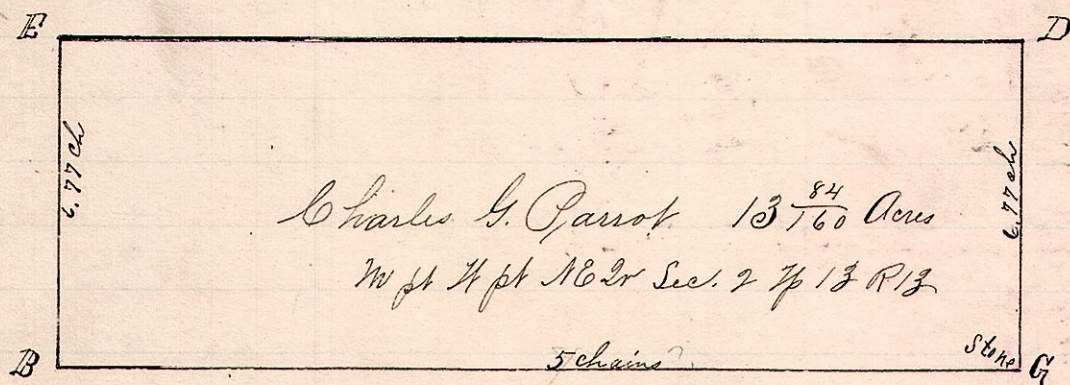 E D
6.77 ch
6.77 ch
Charles G. Parrot 13 84/160 Acres
M pt W pt NE Qr Sec. 2 Tp 13 R 13
B 5 chains Stone G